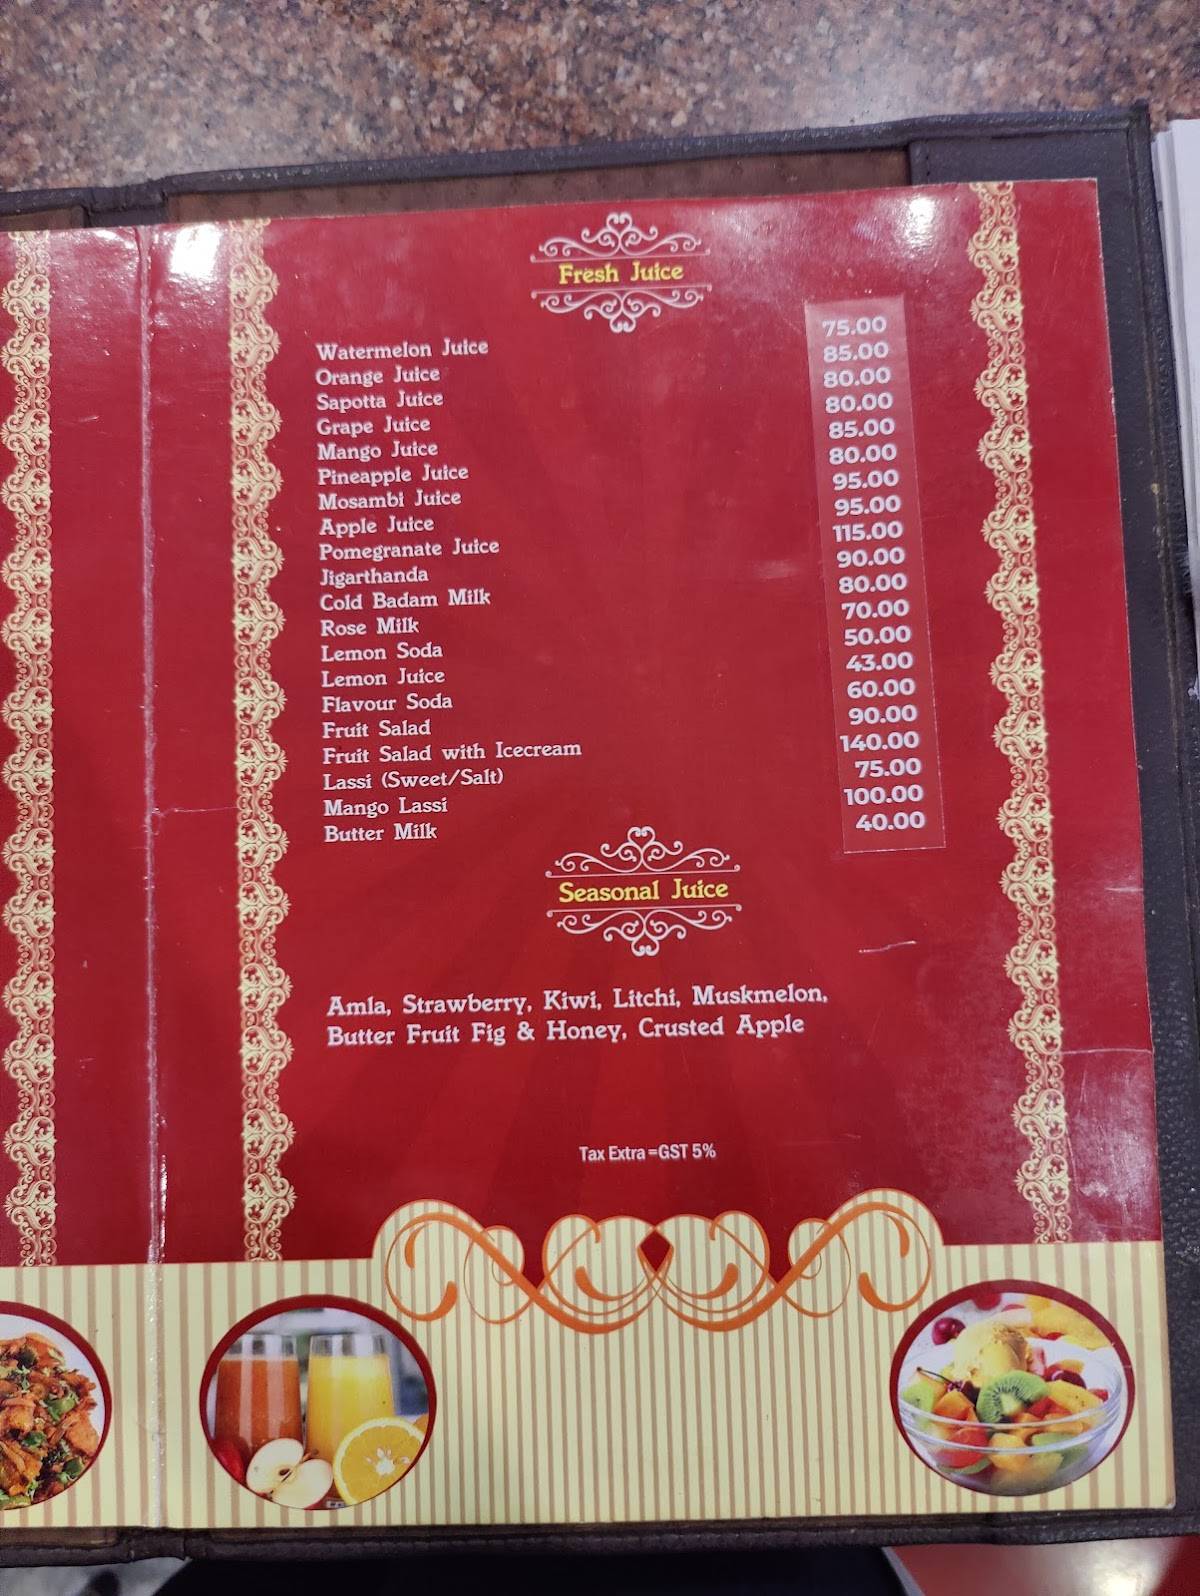 Fresh Juice
Watermelon Juice 75.00
Orange Juice 85.00
Sapotta Juice 80.00
Grape Juice 80.00
Mango Juice 85.00
Pineapple Juice 80.00
Mosambi Juice 95.00
Apple Juice 95.00
Pomegranate Juice 115.00
Jigarthanda 90.00
Cold Badam Milk 80.00
Rose Milk 70.00
Lemon Soda 50.00
Lemon Juice 43.00
Flavour Soda 60.00
Fruit Salad 90.00
Fruit Salad with Icecream 140.00
Lassi (Sweet/Salt) 75.00
Mango Lassi 100.00
Butter Milk 40.00
Seasonal Juice
Amla, Strawberry, Kiwi, Litchi, Muskmelon,
Butter Fruit Fig & Honey, Crusted Apple
Tax Extra =GST 5%